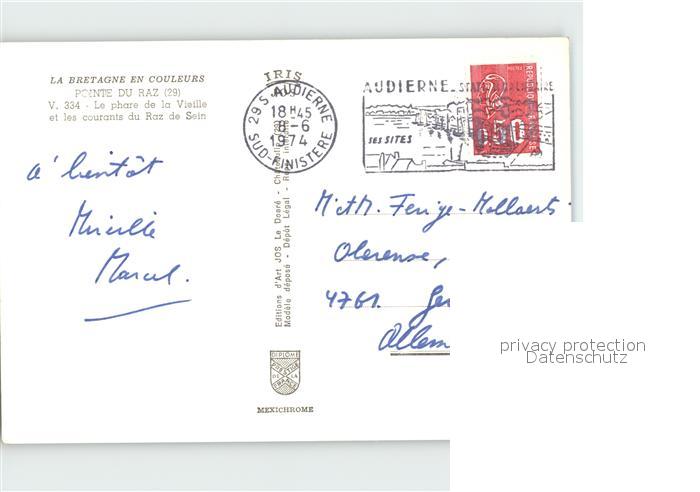 LA BRETAGNE EN COULEURS
POINTE DU RAZ (29)
V. 334 - Le phare de la Vieille
et les courants du Raz de Sein
à bientôt
Mireille
Marcel.
IRIS
JOS
29 S. AUDIERNE
18 H 45
8-6
1974
SUD-FINISTERE
AUDIERNE
SES SITES
0,50
Editions d'Art JOS Le Doaré -
Modèle déposé - Dépôt Légal -
DIPLOME
PRESTIGE
DE LA
FRANCE
MEXICHROME
M. et M. Ferige-Mollaerts
4761.
privacy protection
Datenschutz